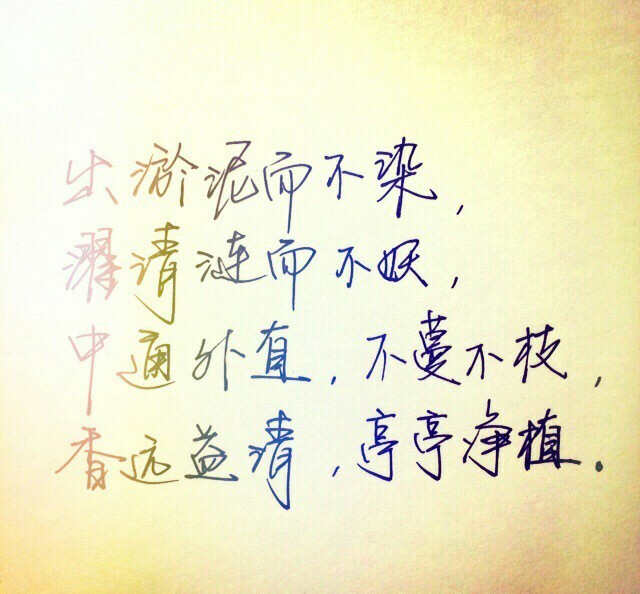 出瘀泥而不染,
濯清涟而不妖,
中通外直,不蔓不枝,
香远益清,亭亭净植.